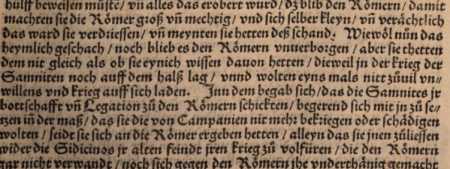 hülff beweisen müste / vn̄ alles das erobert wurd / dz blib den Römern / damit
machten sie die Römer groß vn̄ mechtig / vnd sich selber kleyn / vn̄ verächtlich
das ward sie verdriessen / vn̄ meynten sie hetten deß schand. Wiewol nun das
heymlich geschach / noch blieb es den Römern vnuerborgen / aber sie thetten
dem nit gleich als ob sie eynich wissen dauon hetten / dieweil jn der krieg der
Samniten noch auff dem halß lag / vnnd wolten eyns mals nitt zůuil vn-
willens vnd krieg auff sich laden. Inn dem begab sich / das die Samnites jr
bottschafft vn̄ Legation zů den Römern schickten / begerend sich mit jn zů se-
tzen in der maß / das sie die von Campanien nit mehr bekriegen oder schädigen
wolten / seidt sie sich an die Römer ergeben hetten / alleyn das sie jnen zůliessen
wider die Sidicinos jr alten feindt jren krieg zů volfüren / die den Römern
gar nicht verwandt / noch sich gegen den Römern ihe vnderthänig gemacht